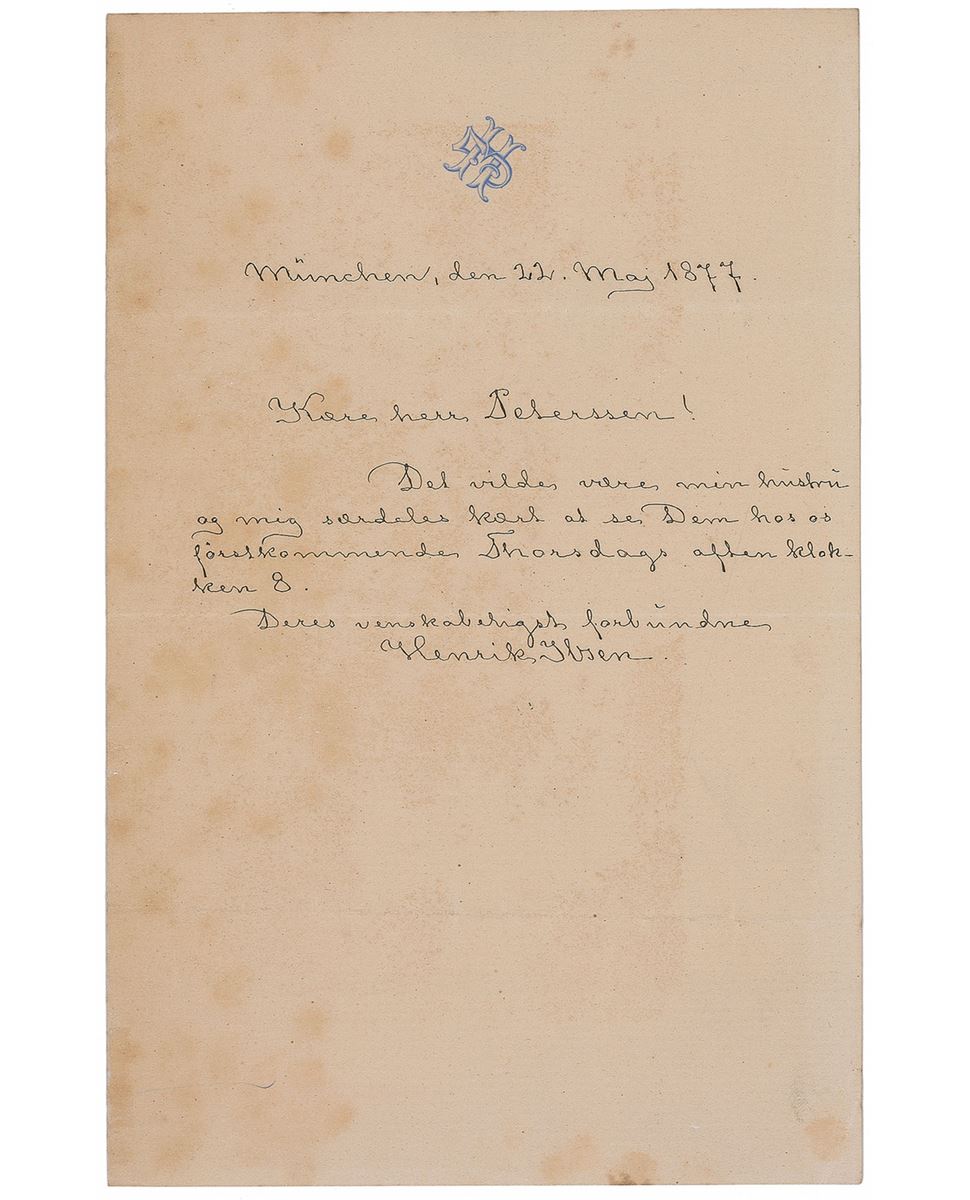 München, den 22. Maj 1877.
Kære herr Peterssen!
Det vilde være min hustru
og mig særdeles kært at se Dem hos os
förstkommende Thorsdags aften klok-
ken 8.
Deres venskabeligst forbundne
Henrik Ibsen.